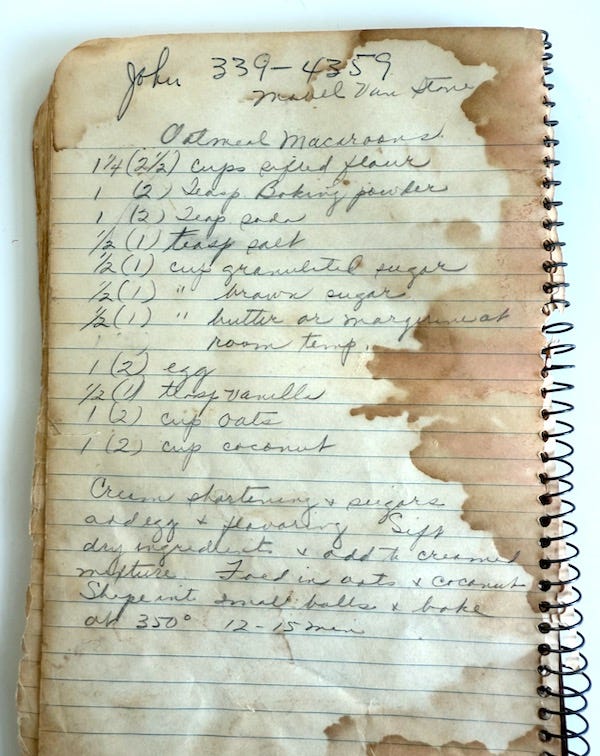 John 339-4359
Mabel Van Stone
Oatmeal Macaroons
1¼ (2½) cups sifted flour
1 (2) Teasp Baking powder
1 (2) Teap soda
½ (1) teasp salt
½ (1) cup granulated sugar
½ (1) " brown sugar
½ (1) " butter or margurine at
room temp.
1 (2) egg
½ (1) teasp vanilla
1 (2) cup oats
1 (2) cup coconut
Cream shortening & sugars
add egg & flavoring Sift
dry ingredients & add to creamed
mixture. Foed in oats & coconut
Shape int small balls & bake
at 350° 12-15 min